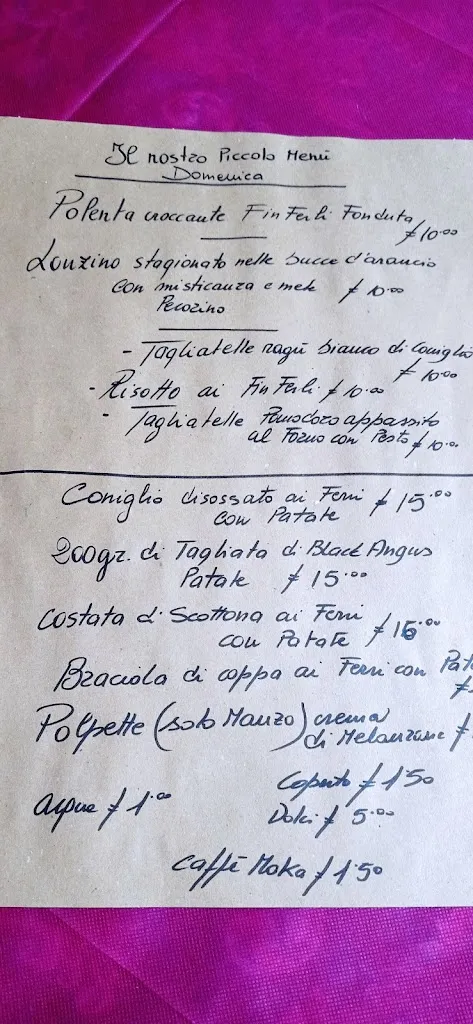 Il nostro Piccolo Menù
Domenica
Polenta croccante FinFerli Fonduta
£ 10.00
Lonzino stagionato nelle bucce d'arancio
con misticanza e mele £ 10.00
Pecorino
- Tagliatelle ragù bianco di coniglio
£ 10.00
- Risotto ai FinFerli £ 10.00
- Tagliatelle Pomodoro appassito
al Forno con Pesto £ 10.00
Coniglio disossato ai Ferri £ 15.00
con Patate
200gr. di Tagliata di Black Angus
Patate £ 15.00
Costata di Scottona ai Ferri
con Patate £ 16.00
Braciola di coppa ai Ferri con Pat
£
Polpette (solo Manzo) crema
di Melanzane £
Coperto £ 1.50
acqua £ 1.00
Dolci £ 5.00
Caffè Moka £ 1.50